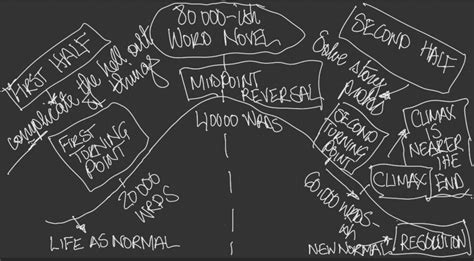 80 000-ish
WORD NOVEL
FIRST HALF
complicate the hell out
of things
SECOND HALF
Solve story
probs
MIDPOINT
REVERSAL
40000 WRDS
FIRST
TURNING
POINT
20000
WRDS
SECOND
TURNING
POINT
60000 WRDS-
ish
CLIMAX
IS
NEARER
THE
END
CLIMAX
LIFE AS NORMAL
NEW NORMAL
RESOLUTION